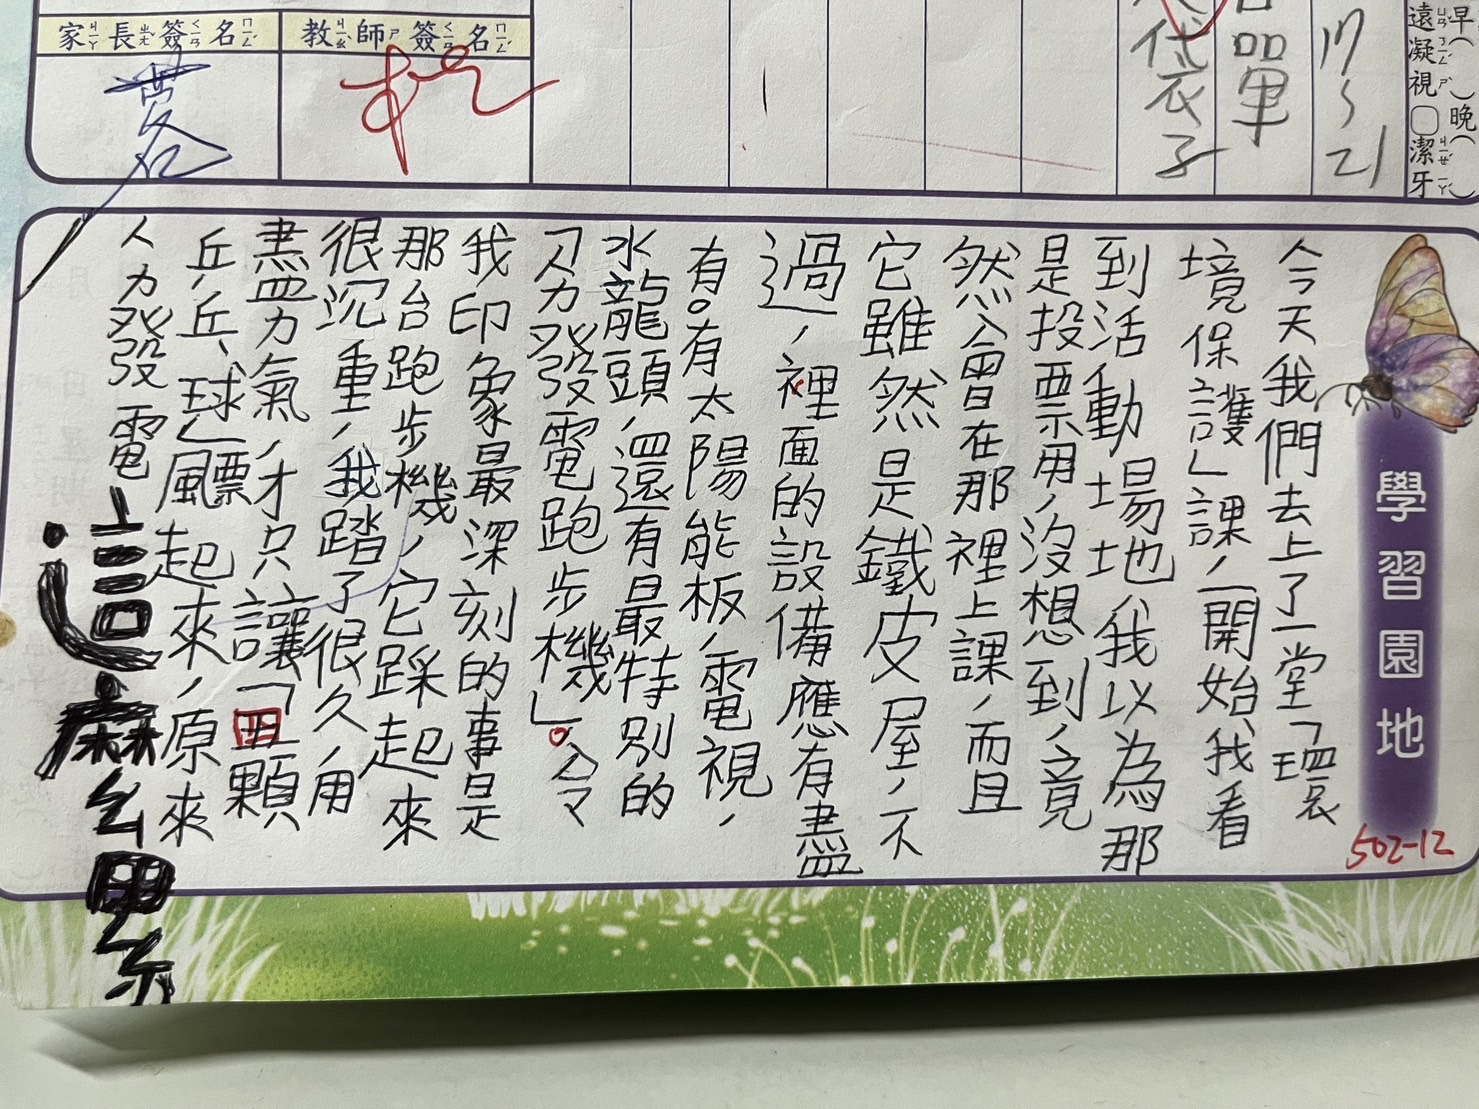 早（　）晚（　）
遠凝視□潔牙
17~21
品單
代衣子
教師簽名
家長簽名
學習園地
502-12
今天我們去上了一堂「環
境保護」課，一開始我看
到活動場地，我以為那
是投票用，沒想到，竟
然會在那裡上課，而且
它雖然是鐵皮屋，不
過，裡面的設備應有盡
有。有太陽能板，電視，
水龍頭，還有最特別的
「人力發電跑步機」。令
我印象最深刻的事是
那台跑步機，它踩起來
很沉重，我踏了很久，用
盡力氣，才只讓「四顆
乒乓球」飄起來，原來
人力發電
這麼累